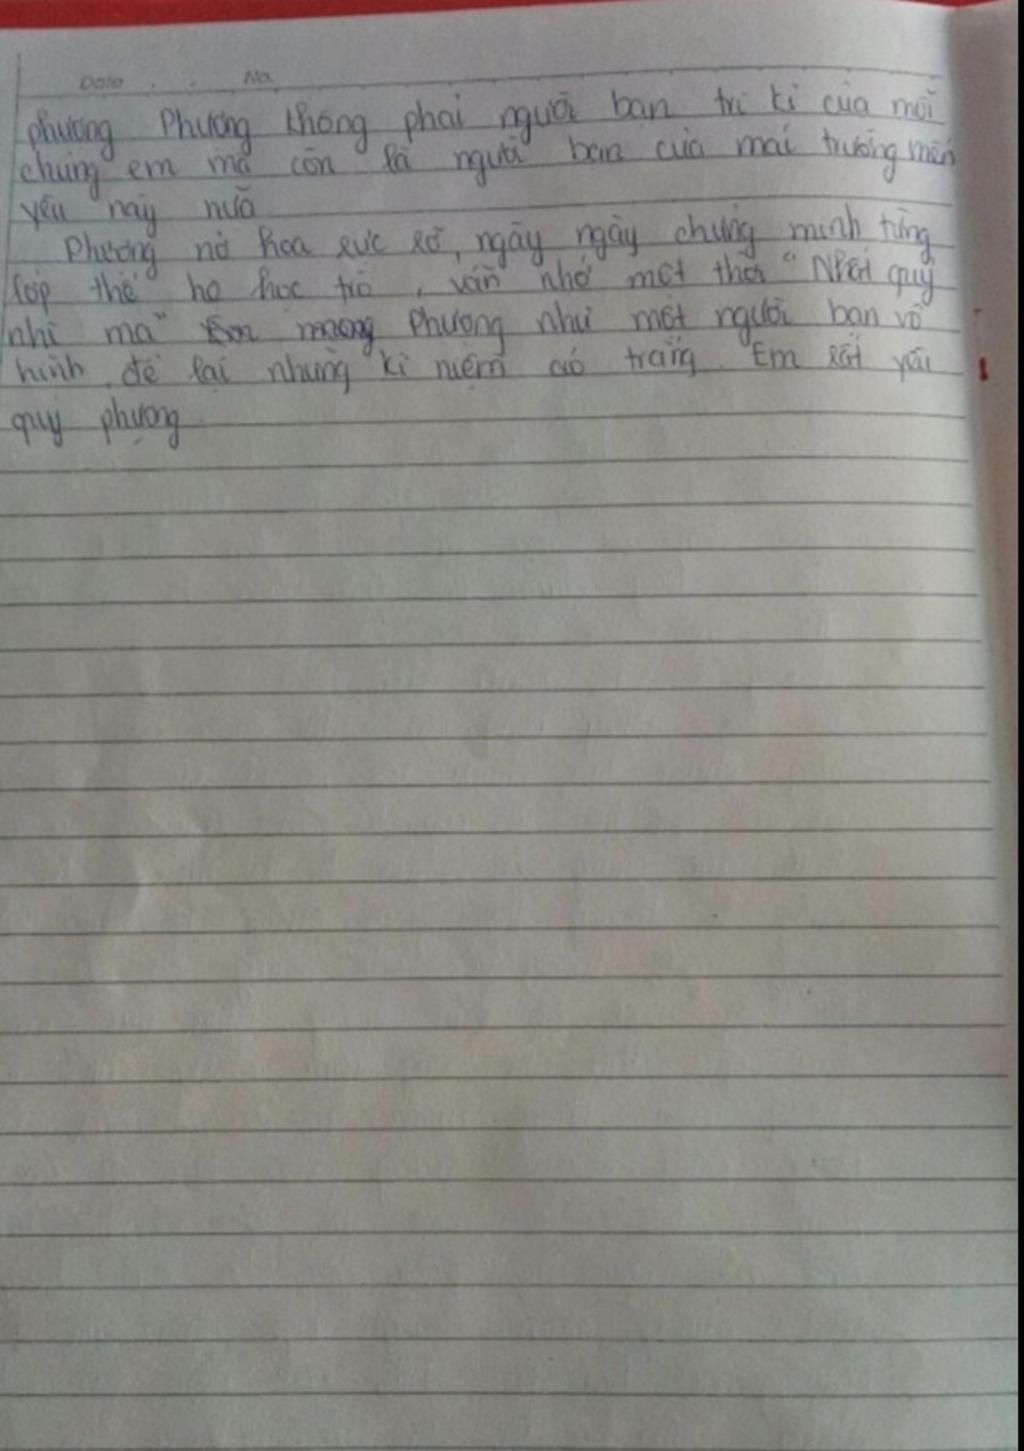 Date . . No.
phương Phương không phải người bạn tri kỉ của mỗi
chúng em mà còn là người bạn của mái trường mến
yêu này nữa
Phượng nở hoa rực rỡ, ngày ngày chứng minh từng
lớp thế hệ học trò, vẫn nhớ một thời "Nhất quỷ
nhì ma" Phượng như một người bạn vô
hình, để lại những kỉ niệm áo trắng. Em rất yêu
quý phượng